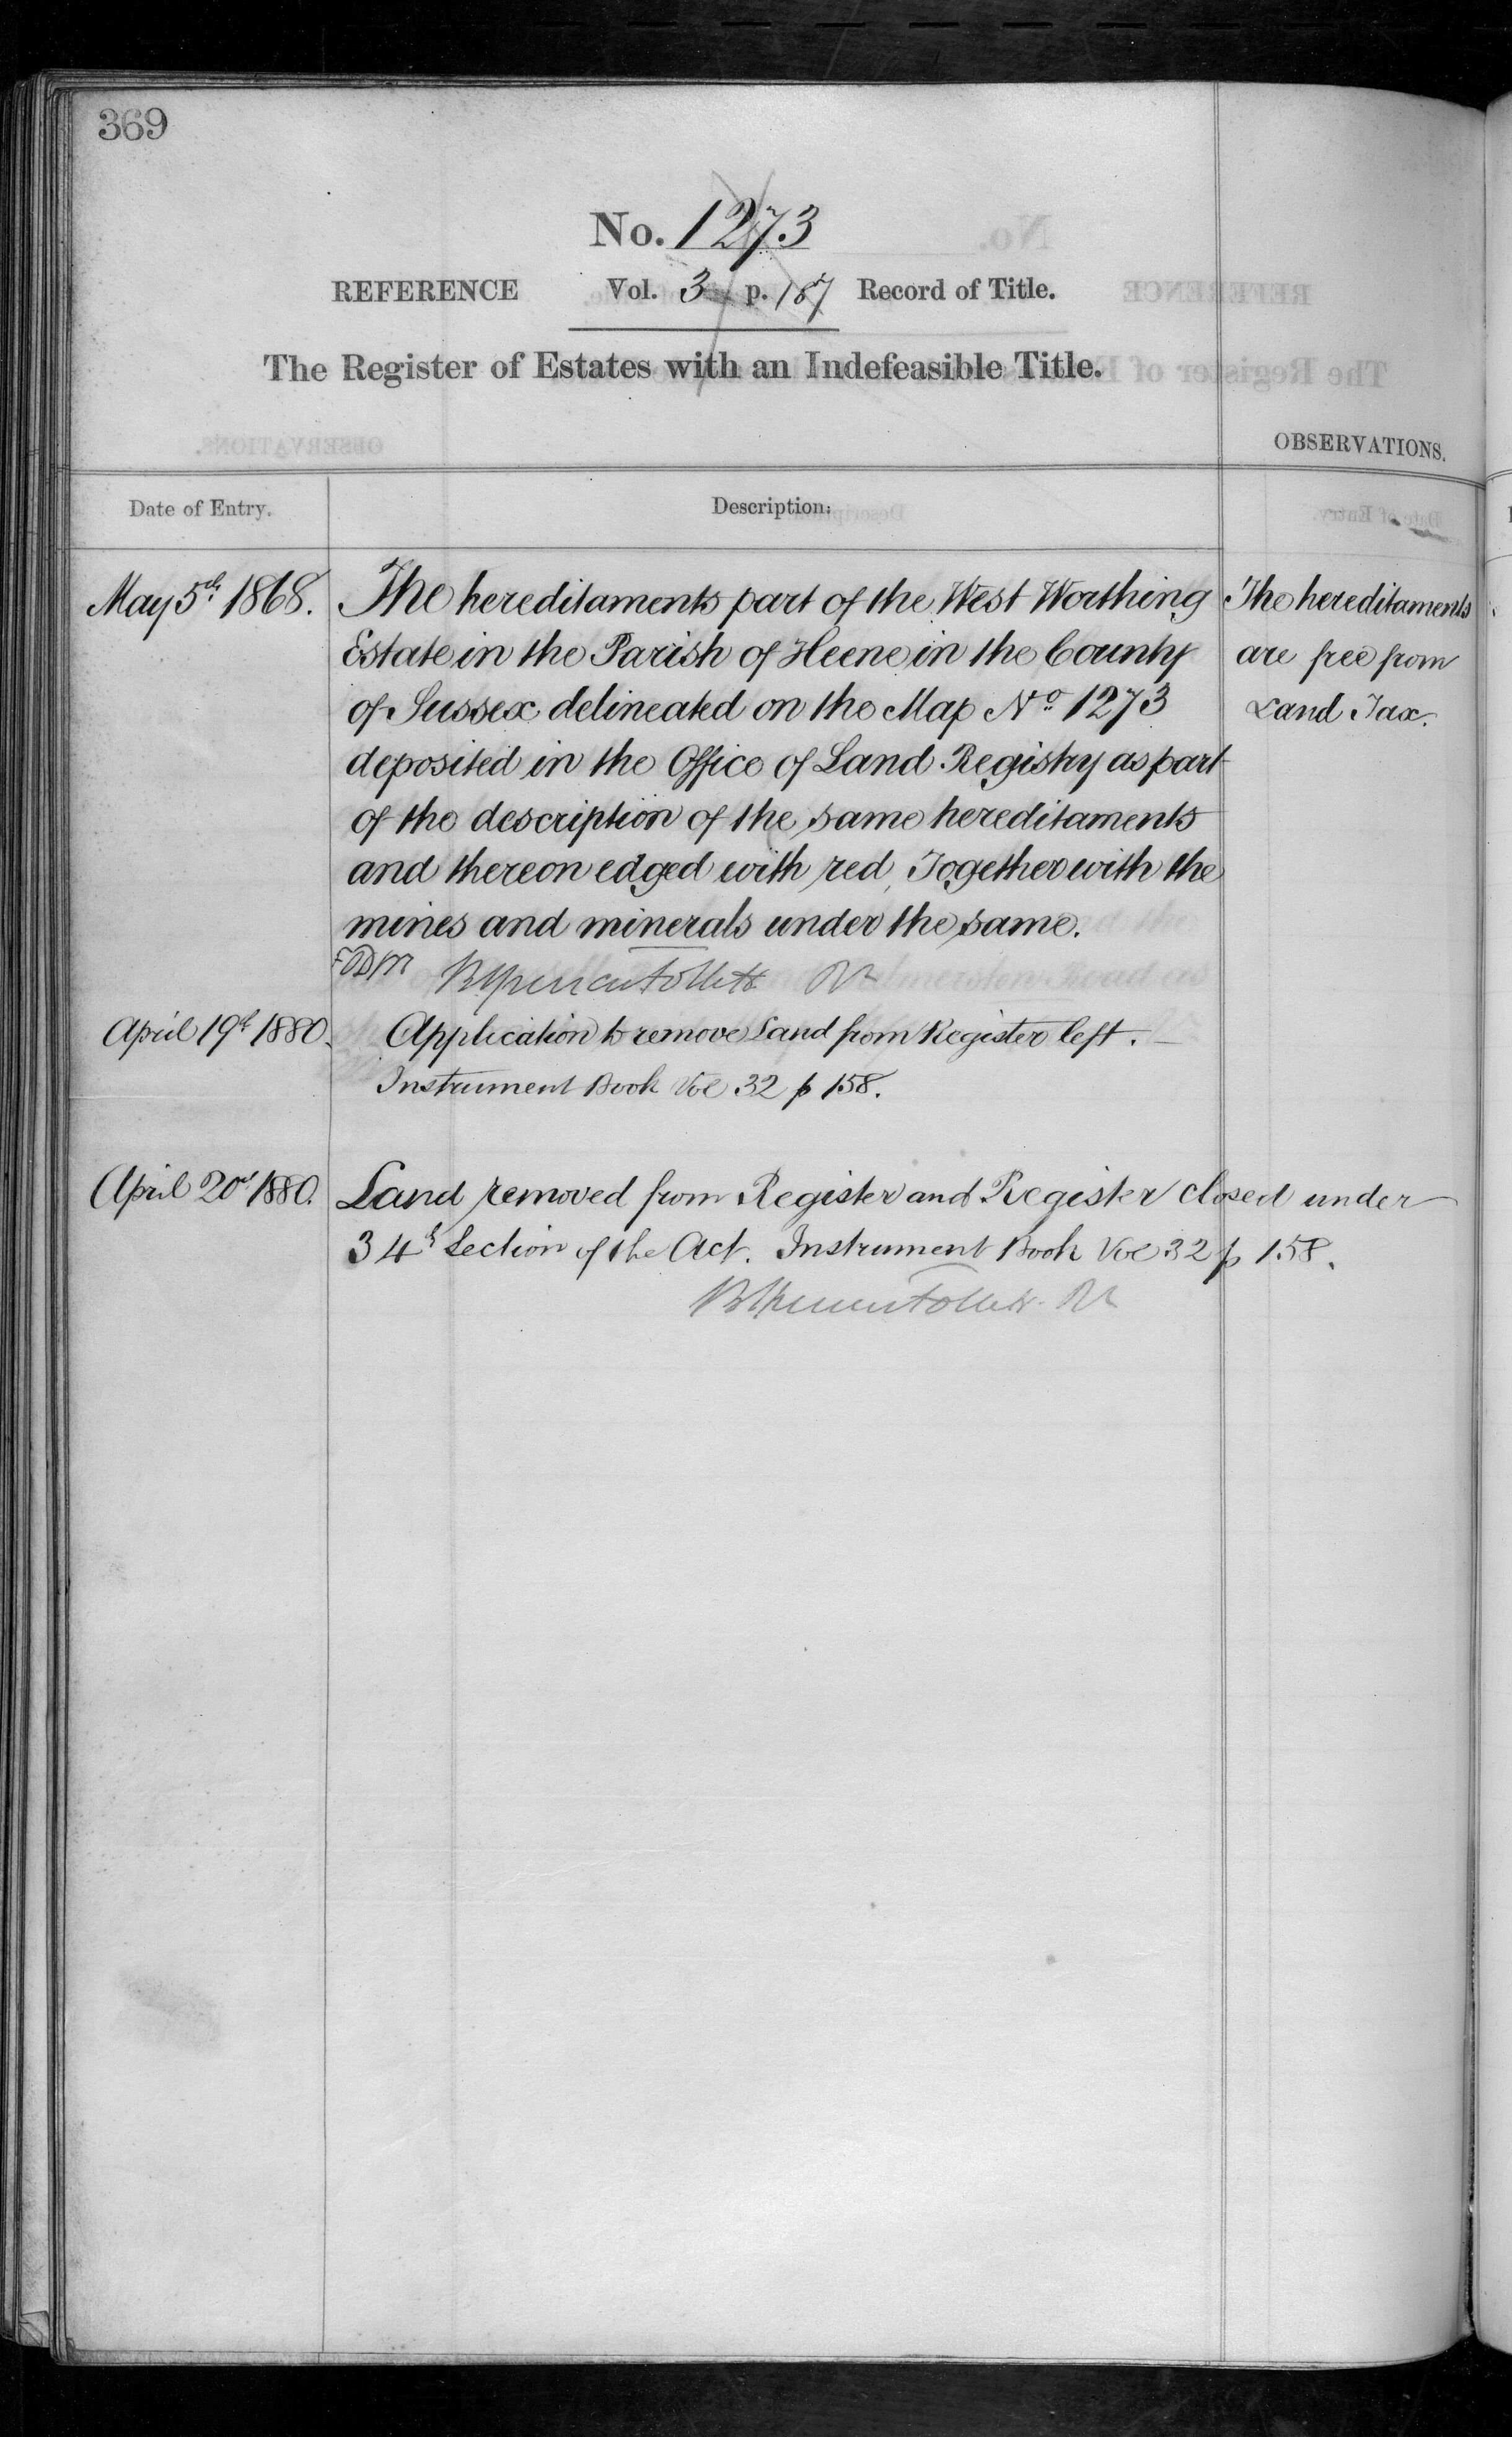 369
No. 1273
REFERENCE Vol. 3 p. 187 Record of Title.
The Register of Estates with an Indefeasible Title.
OBSERVATIONS.
Date of Entry. Description.
May 5th 1868. The hereditaments part of the West Worthing
Estate in the Parish of Heene in the County
of Sussex delineated on the Map No. 1273
deposited in the Office of Land Registry as part
of the description of the same hereditaments
and thereon edged with red, Together with the
mines and minerals under the same.
The hereditaments
are free from
Land Tax.
April 19th 1880. Application to remove Land from Register left.
Instrument Book Vol 32 p 158.
April 20th 1880. Land removed from Register and Register closed under
34th Section of the Act. Instrument Book Vol 32 p 158.